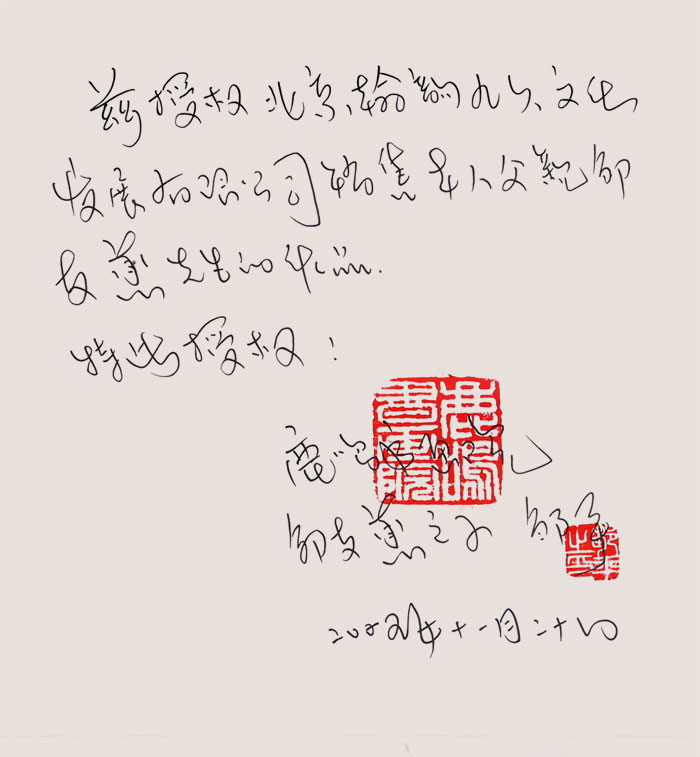 兹授权北京翰翔九久文化
发展有限公司销售本人父亲邹
友蕙先生的作品.
特出授权！
鹿鸣书院
邹友蕙之子 邹
年十一月二十日